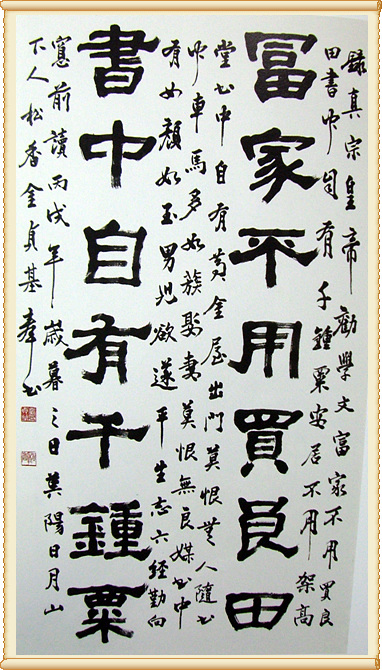 錄真宗皇帝勸學文富家不用買良
田書中自有千鍾粟安居不用架高
富家不用買良田
堂書中自有黃金屋出門莫恨無人隨書
中車馬多如簇娶妻莫恨無良媒書中
有女顏如玉男兒欲遂平生志六經勤向
書中自有千鍾粟
窓前讀丙戌年歲暮之日箕陽日月山
下人松香金貞基奉書